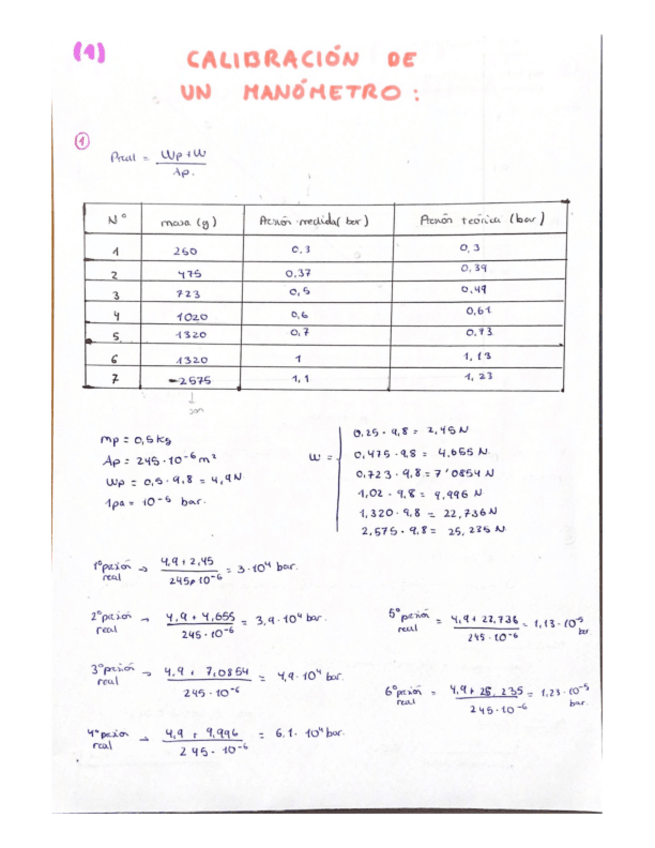 (1)
CALIBRACIÓN DE
UN MANÓMETRO :
1
Preal = Wp+W / Ap.
Nº masa (g) Presión medida (bar) Presión teórica (bar)
1 250 0,3 0,3
2 475 0,37 0,39
3 723 0,5 0,49
4 1020 0,6 0,61
5 1320 0,7 0,73
6 1320 1 1,13
7 2575 1,1 1,23
mp = 0,5 kg
Ap = 245·10⁻⁶ m²
Wp = 0,5 · 9,8 = 4,9 N
1pa = 10⁻⁵ bar.
W =
0,25 · 9,8 = 2,45 N
0,475 · 9,8 = 4,655 N
0,723 · 9,8 = 7'0854 N
1,02 · 9,8 = 9,996 N
1,320 · 9,8 = 22,736 N
2,575 · 9,8 = 25,235 N
1º presión real → 4,9 + 2,45 / 245·10⁻⁶ = 3·10⁴ bar.
2º presión real → 4,9 + 4,655 / 245·10⁻⁶ = 3,9·10⁴ bar.
3º presión real → 4,9 + 7,0854 / 245·10⁻⁶ = 4,9·10⁴ bar.
4º presión real → 4,9 + 9,996 / 245·10⁻⁶ = 6.1·10⁴ bar.
5º presión real = 4,9 + 22,736 / 245·10⁻⁶ = 1,13·10⁻⁵ bar.
6º presión real = 4,9 + 25,235 / 245·10⁻⁶ = 1,23·10⁻⁵ bar.